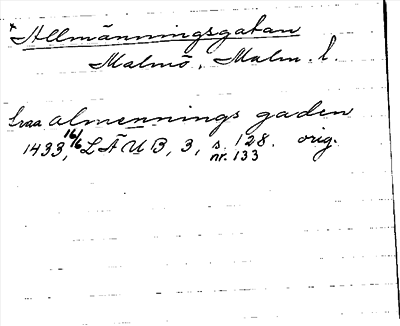 *Allmänningsgatan
Malmö, Malm. l.
almennings gaden
1433, 16/6 LÄUB, 3, s. 128. orig.
nr. 133